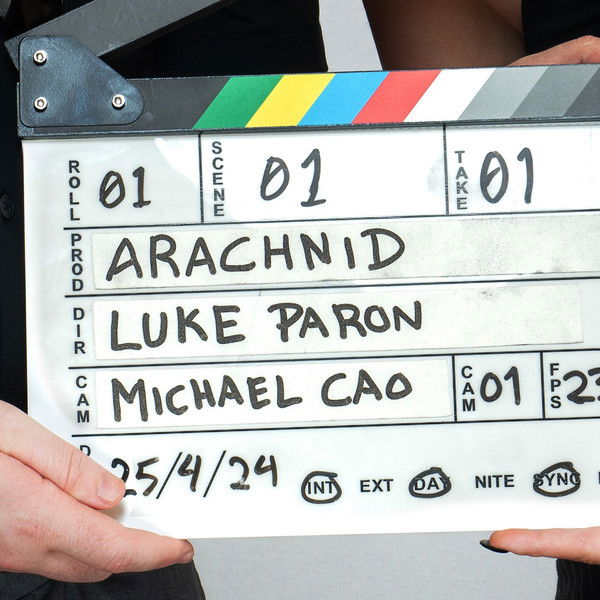 ROLL 01 SCENE 01 TAKE 01
PROD ARACHNID
DIR LUKE PARON
CAM MICHAEL CAO CAM 01 FPS 23
25/4/24 INT EXT DAY NITE SYNC